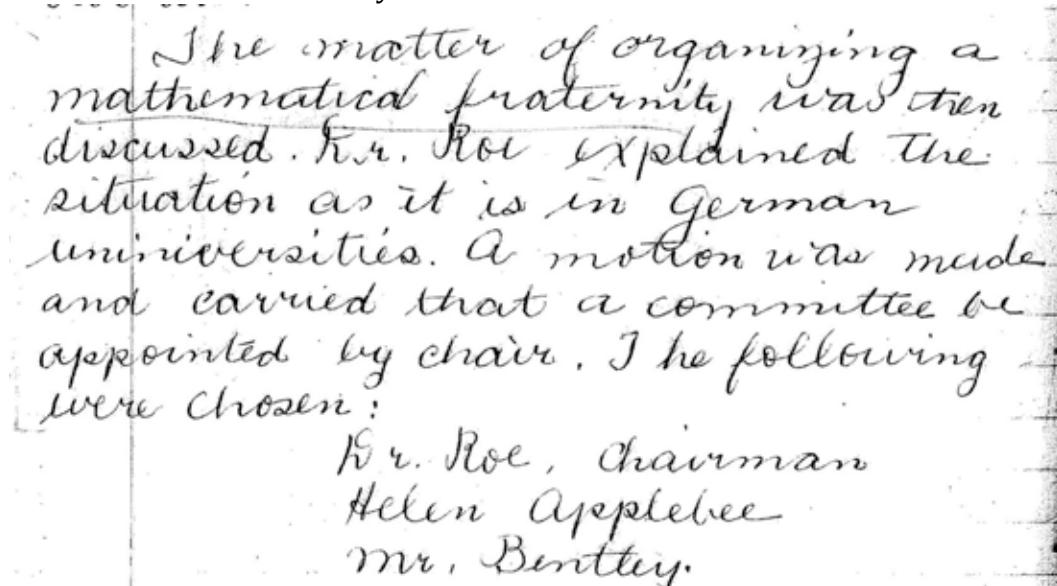 The matter of organizing a
mathematical fraternity was then
discussed. Dr. Roe explained the
situation as it is in German
uniniversities. A motion was made
and carried that a committee be
appointed by chair. The following
were chosen:
Dr. Roe, Chairman
Helen Applebee
Mr. Bentley.